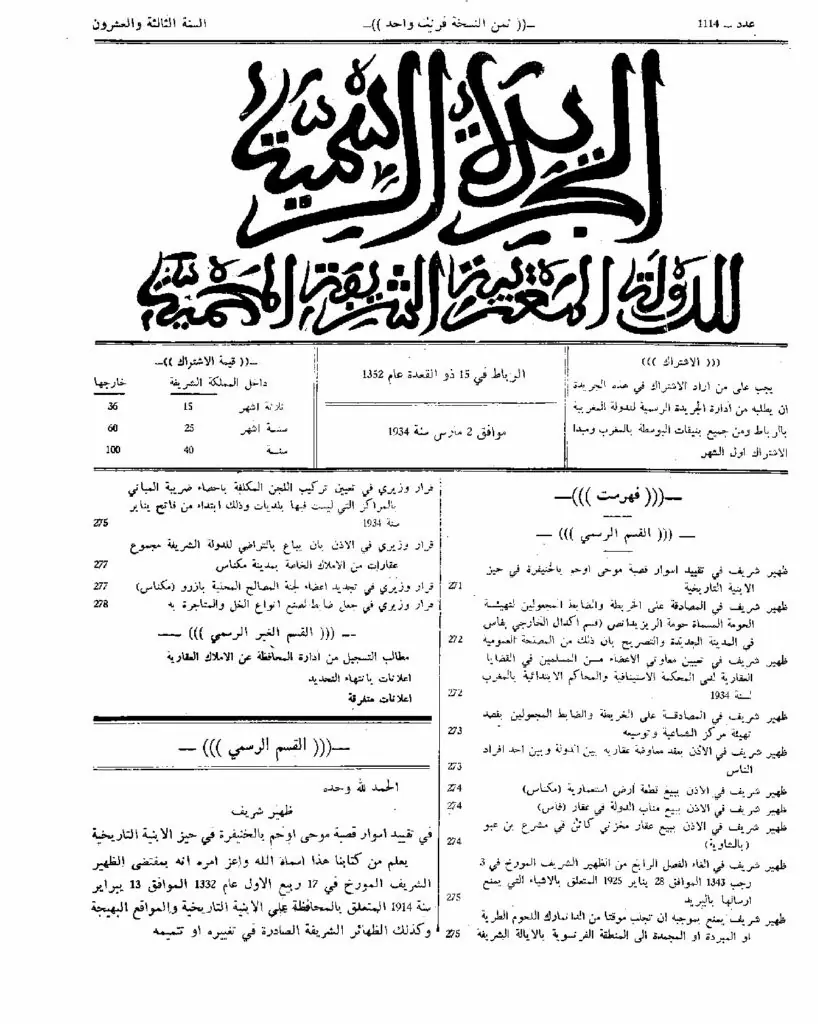 عدد ـ 1114
ـ(( ثمن النسخة فرنك واحد ))ـ
السنة الثالثة والعشرون
الجريدة الرسمية
للدولة المغربية الشريفة المحمية
((( الاشتراك )))
يجب على من اراد الاشتراك في هذه الجريدة
ان يطلبه من ادارة الجريدة الرسمية للدولة المغربية
بالرباط ومن جميع بنيقات البوسطة بالمغرب ومبدا
الاشتراك اول الشهر
الرباط في 15 ذو القعدة عام 1352
موافق 2 مارس سنة 1934
ـ(( قيمة الاشتراك ))ـ
داخل المملكة الشريفة خارجها
ثلاثة اشهر 15 36
ستة اشهر 25 60
سنة 40 100
ـ((( فهرست )))ـ
ـ((( القسم الرسمي )))ـ
ظهير شريف في تقييد اسوار قصبة موحى اوحم بالخنيفرة في حيز
الابنية التاريخية 271
ظهير شريف في المصادقة على الخريطة والضابط المجعولين لتهيئة
الحومة المسماة حومة الريزيدانص (قسم اكدال الخارجي بفاس
في المدينة الجديدة والتصريح بان ذلك من المصلحة العمومية 272
ظهير شريف في تعيين معاوني الاعضاء من المسلمين في القضايا
العقارية لدى المحكمة الاستينافية والمحاكم الابتدائية بالمغرب
لسنة 1934 272
ظهير شريف في المصادقة على الخريطة والضابط المجعولين بقصد
تهيئة مركز الشماعية وتوسيعه 273
ظهير شريف في الاذن بعقد معاوضة عقارية بين الدولة وبين احد افراد
الناس 273
ظهير شريف في الاذن ببيع قطعة أرض استعمارية (مكناس) 274
ظهير شريف في الاذن ببيع مناب الدولة في عقار (فاس) 274
ظهير شريف في الاذن ببيع عقار مخزني كائن في مشرع بن عبو
(بالشاوية) 274
ظهير شريف في الغاء الفصل الرابع من الظهير الشريف المورخ في 3
رجب 1343 الموافق 28 يناير 1925 المتعلق بالاشياء التي يمنع
ارسالها بالبريد 275
ظهير شريف يمنع بموجبه ان تجلب موقتا من الدانمارك اللحوم الطرية
او المبردة او المجمدة الى المنطقة الفرنسوية بالايالة الشريفة 275
قرار وزيري في تعيين تركيب اللجن المكلفة باحصاء ضريبة المباني
بالمراكز التي ليست فيها بلديات وذلك ابتداء من فاتح يناير
سنة 1934 275
قرار وزيري في الاذن بان يباع بالتراضي للدولة الشريفة مجموع
عقارات من الاملاك الخاصة بمدينة مكناس 277
قرار وزيري في تجديد اعضاء لجنة المصالح المحلية بازرو (مكناس) 277
قرار وزيري في جعل ضابط لصنع انواع الخل والمتاجرة به 278
ـ((( القسم الغير الرسمي )))ـ
مطالب التسجيل من ادارة المحافظة عن الاملاك العقارية
اعلانات بانتهاء التحديد
اعلانات متفرقة
ـ((( القسم الرسمي )))ـ
الحمد لله وحده
ظهير شريف
في تقييد اسوار قصبة موحى اوحم بالخنيفرة في حيز الابنية التاريخية
يعلم من كتابنا هذا اسماه الله واعز امره انه بمقتضى الظهير
الشريف المورخ في 17 ربيع الاول عام 1332 الموافق 13 يبراير
سنة 1914 المتعلق بالمحافظة على الابنية التاريخية والمواقع البهيجة
وكذلك الظهائر الشريفة الصادرة في تغييره او تتميمه